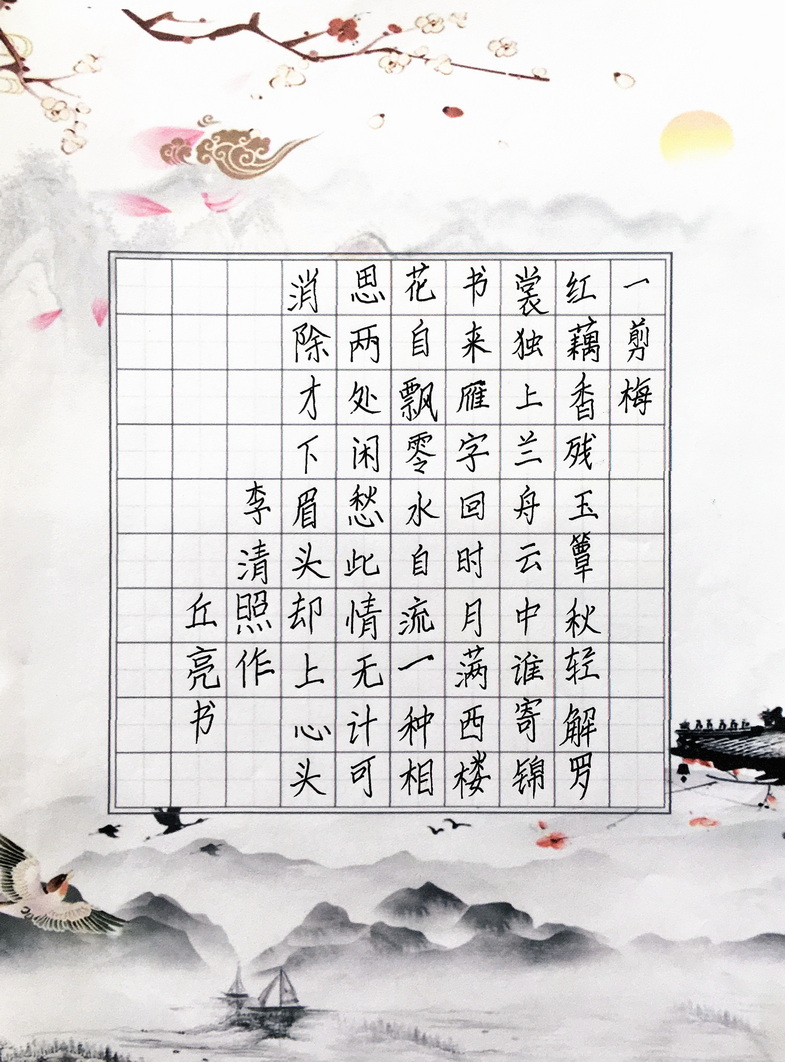 一剪梅
红藕香残玉簟秋轻解罗
裳独上兰舟云中谁寄锦
书来雁字回时月满西楼
花自飘零水自流一种相
思两处闲愁此情无计可
消除才下眉头却上心头
李清照作
丘亮书